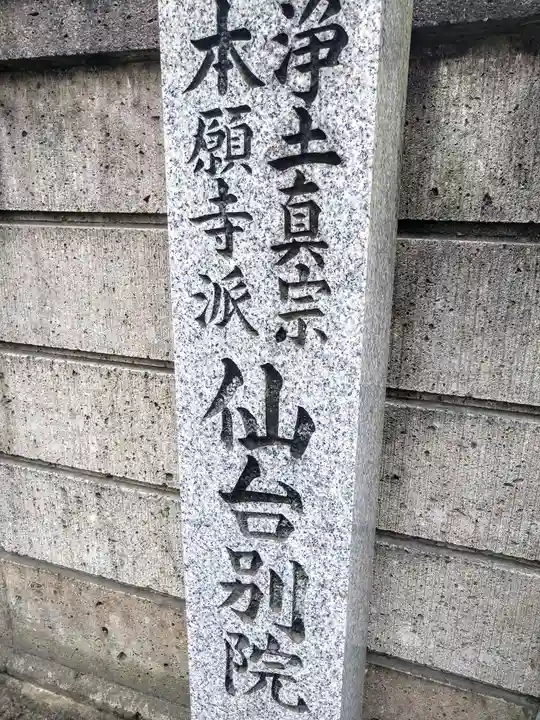 浄土真宗
本願寺派
仙台別院